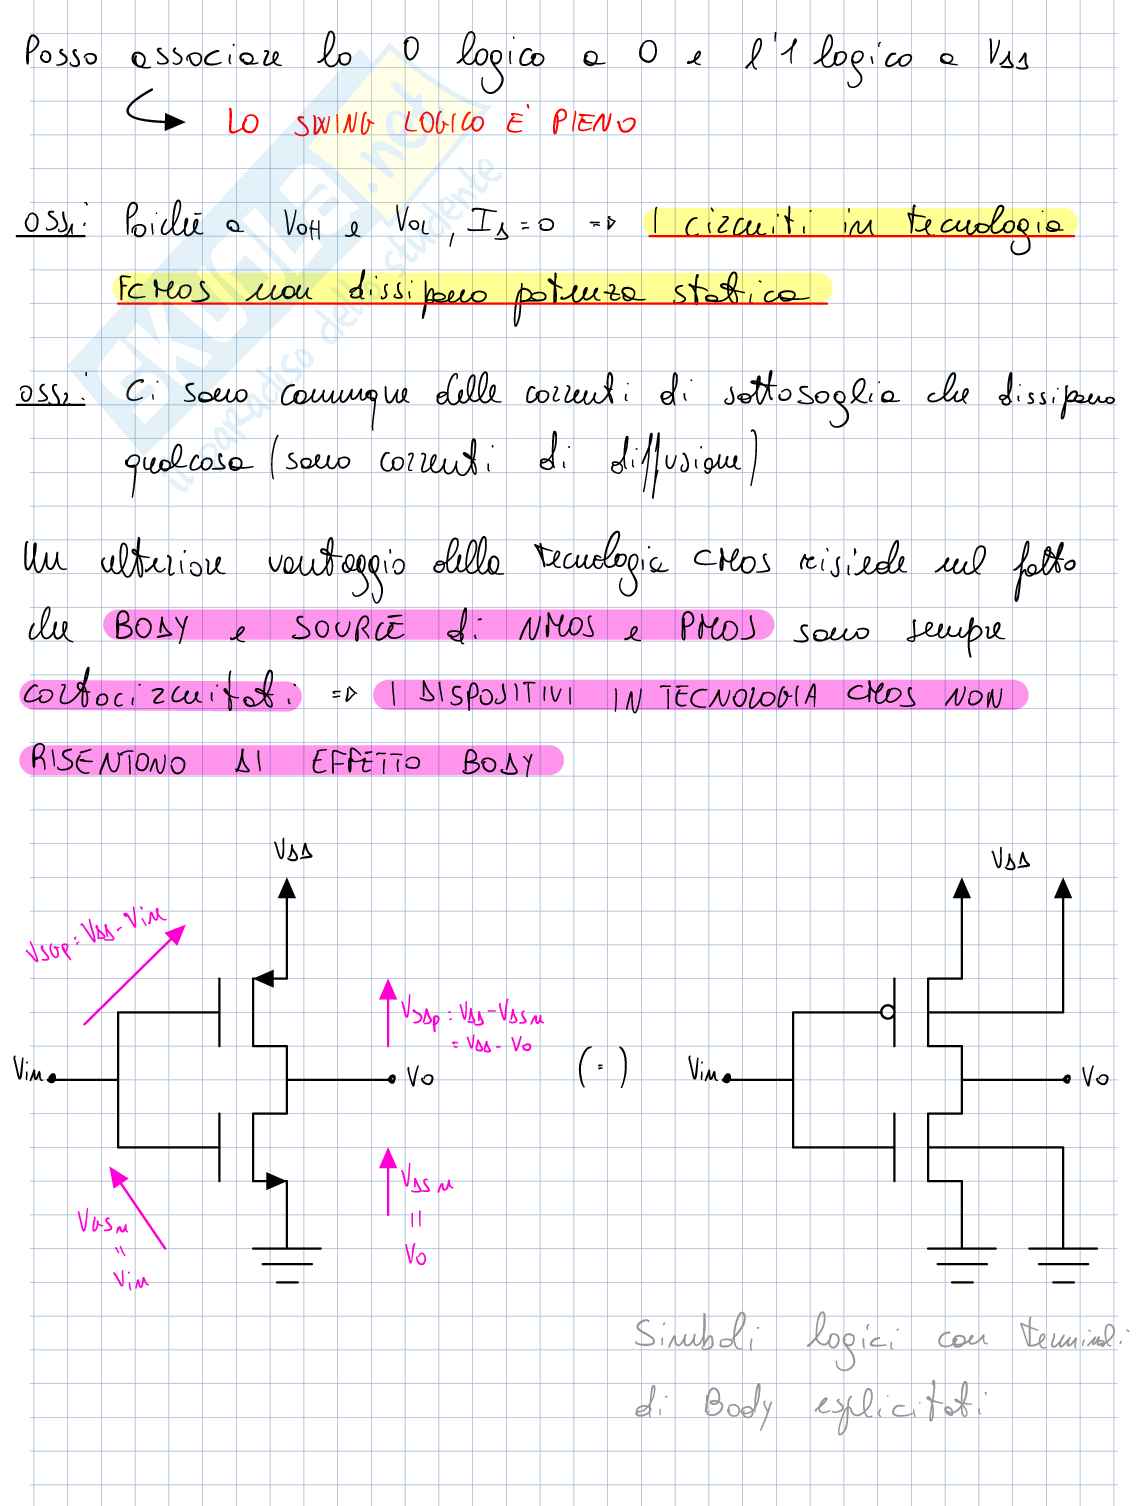 Posso associare lo 0 logico a 0 e l'1 logico a VDD
LO SWING LOGICO E' PIENO
OSS1: Poiché a VOH e VOL, ID=0 => I circuiti in tecnologia
FCMOS non dissipano potenza statica
OSS2: Ci sono comunque delle correnti di sottosoglia che dissipano
qualcosa (sono correnti di diffusione)
Un ulteriore vantaggio della tecnologia CMOS risiede nel fatto
che BODY e SOURCE di NMOS e PMOS sono sempre
cortocircuitati => I DISPOSITIVI IN TECNOLOGIA CMOS NON
RISENTONO DI EFFETTO BODY
VDD
VDD
VSGp = VDD - Vin
VSDp = VDD - VDSn
= VDD - VO
Vin
VO
(=)
Vin
VO
VDSn
=
VO
VGSn
=
Vin
Simboli logici con terminali
di Body esplicitati
SKUOLA.net
il paradiso dello studente